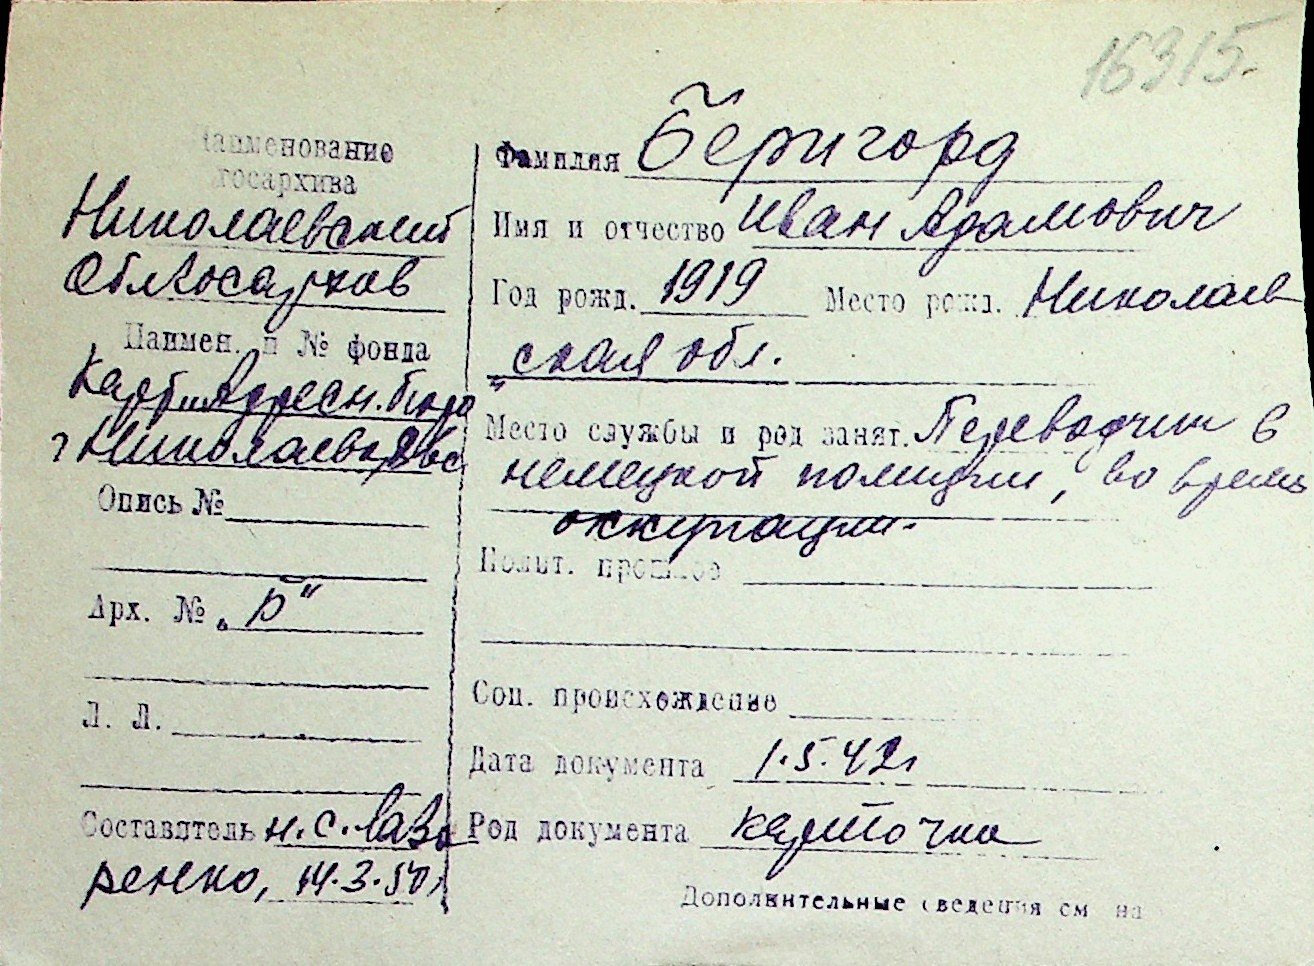 16315.
Наименование
госархива
Николаевский
Облгосархив
Наимен. и № фонда
Карт. Адресн. бюро
г Николаева
Опись №
Арх. № „Б"
Л. Л.
Составитель Н. С. Лаза
ренко, 14.3.50г
Фамилия Беригорд
Имя и отчество Иван Адамович
Год рожд. 1919 Место рожд. Николаев
ская обл.
Место службы и род занят. Переводчик в
немецкой полиции, во время
оккупации.
Полит. прошлое
Соц. происхождение
Дата документа 1.5.42г
Род документа карточка
Дополнительные сведения см на